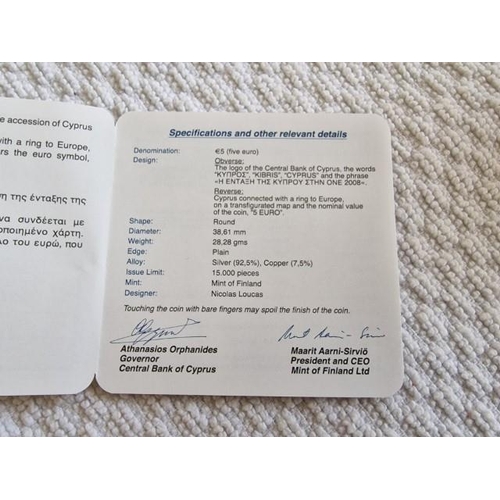 e accession of Cyprus
with a ring to Europe,
rs the euro symbol,
ση της ένταξης της
να συνδέεται με
οποιημένο χάρτη.
λο του ευρώ, που
Specifications and other relevant details
Denomination: €5 (five euro)
Design: Obverse:
The logo of the Central Bank of Cyprus, the words
"ΚΥΠΡΟΣ", "KIBRIS", "CYPRUS" and the phrase
«Η ΕΝΤΑΞΗ ΤΗΣ ΚΥΠΡΟΥ ΣΤΗΝ ΟΝΕ 2008».
Reverse:
Cyprus connected with a ring to Europe,
on a transfigurated map and the nominal value
of the coin, "5 EURO".
Shape: Round
Diameter: 38,61 mm
Weight: 28,28 gms
Edge: Plain
Alloy: Silver (92,5%), Copper (7,5%)
Issue Limit: 15.000 pieces
Mint: Mint of Finland
Designer: Nicolas Loucas
Touching the coin with bare fingers may spoil the finish of the coin.
Athanasios Orphanides
Governor
Central Bank of Cyprus
Maarit Aarni-Sirviö
President and CEO
Mint of Finland Ltd